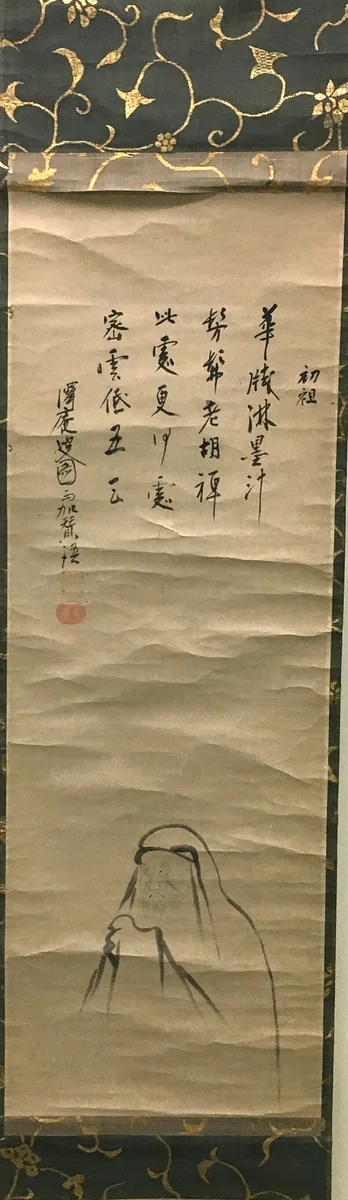 初祖
華牋淋墨汁
髣髴老胡禅
此處更何處
密雲低五天
澤庵 而加賛語